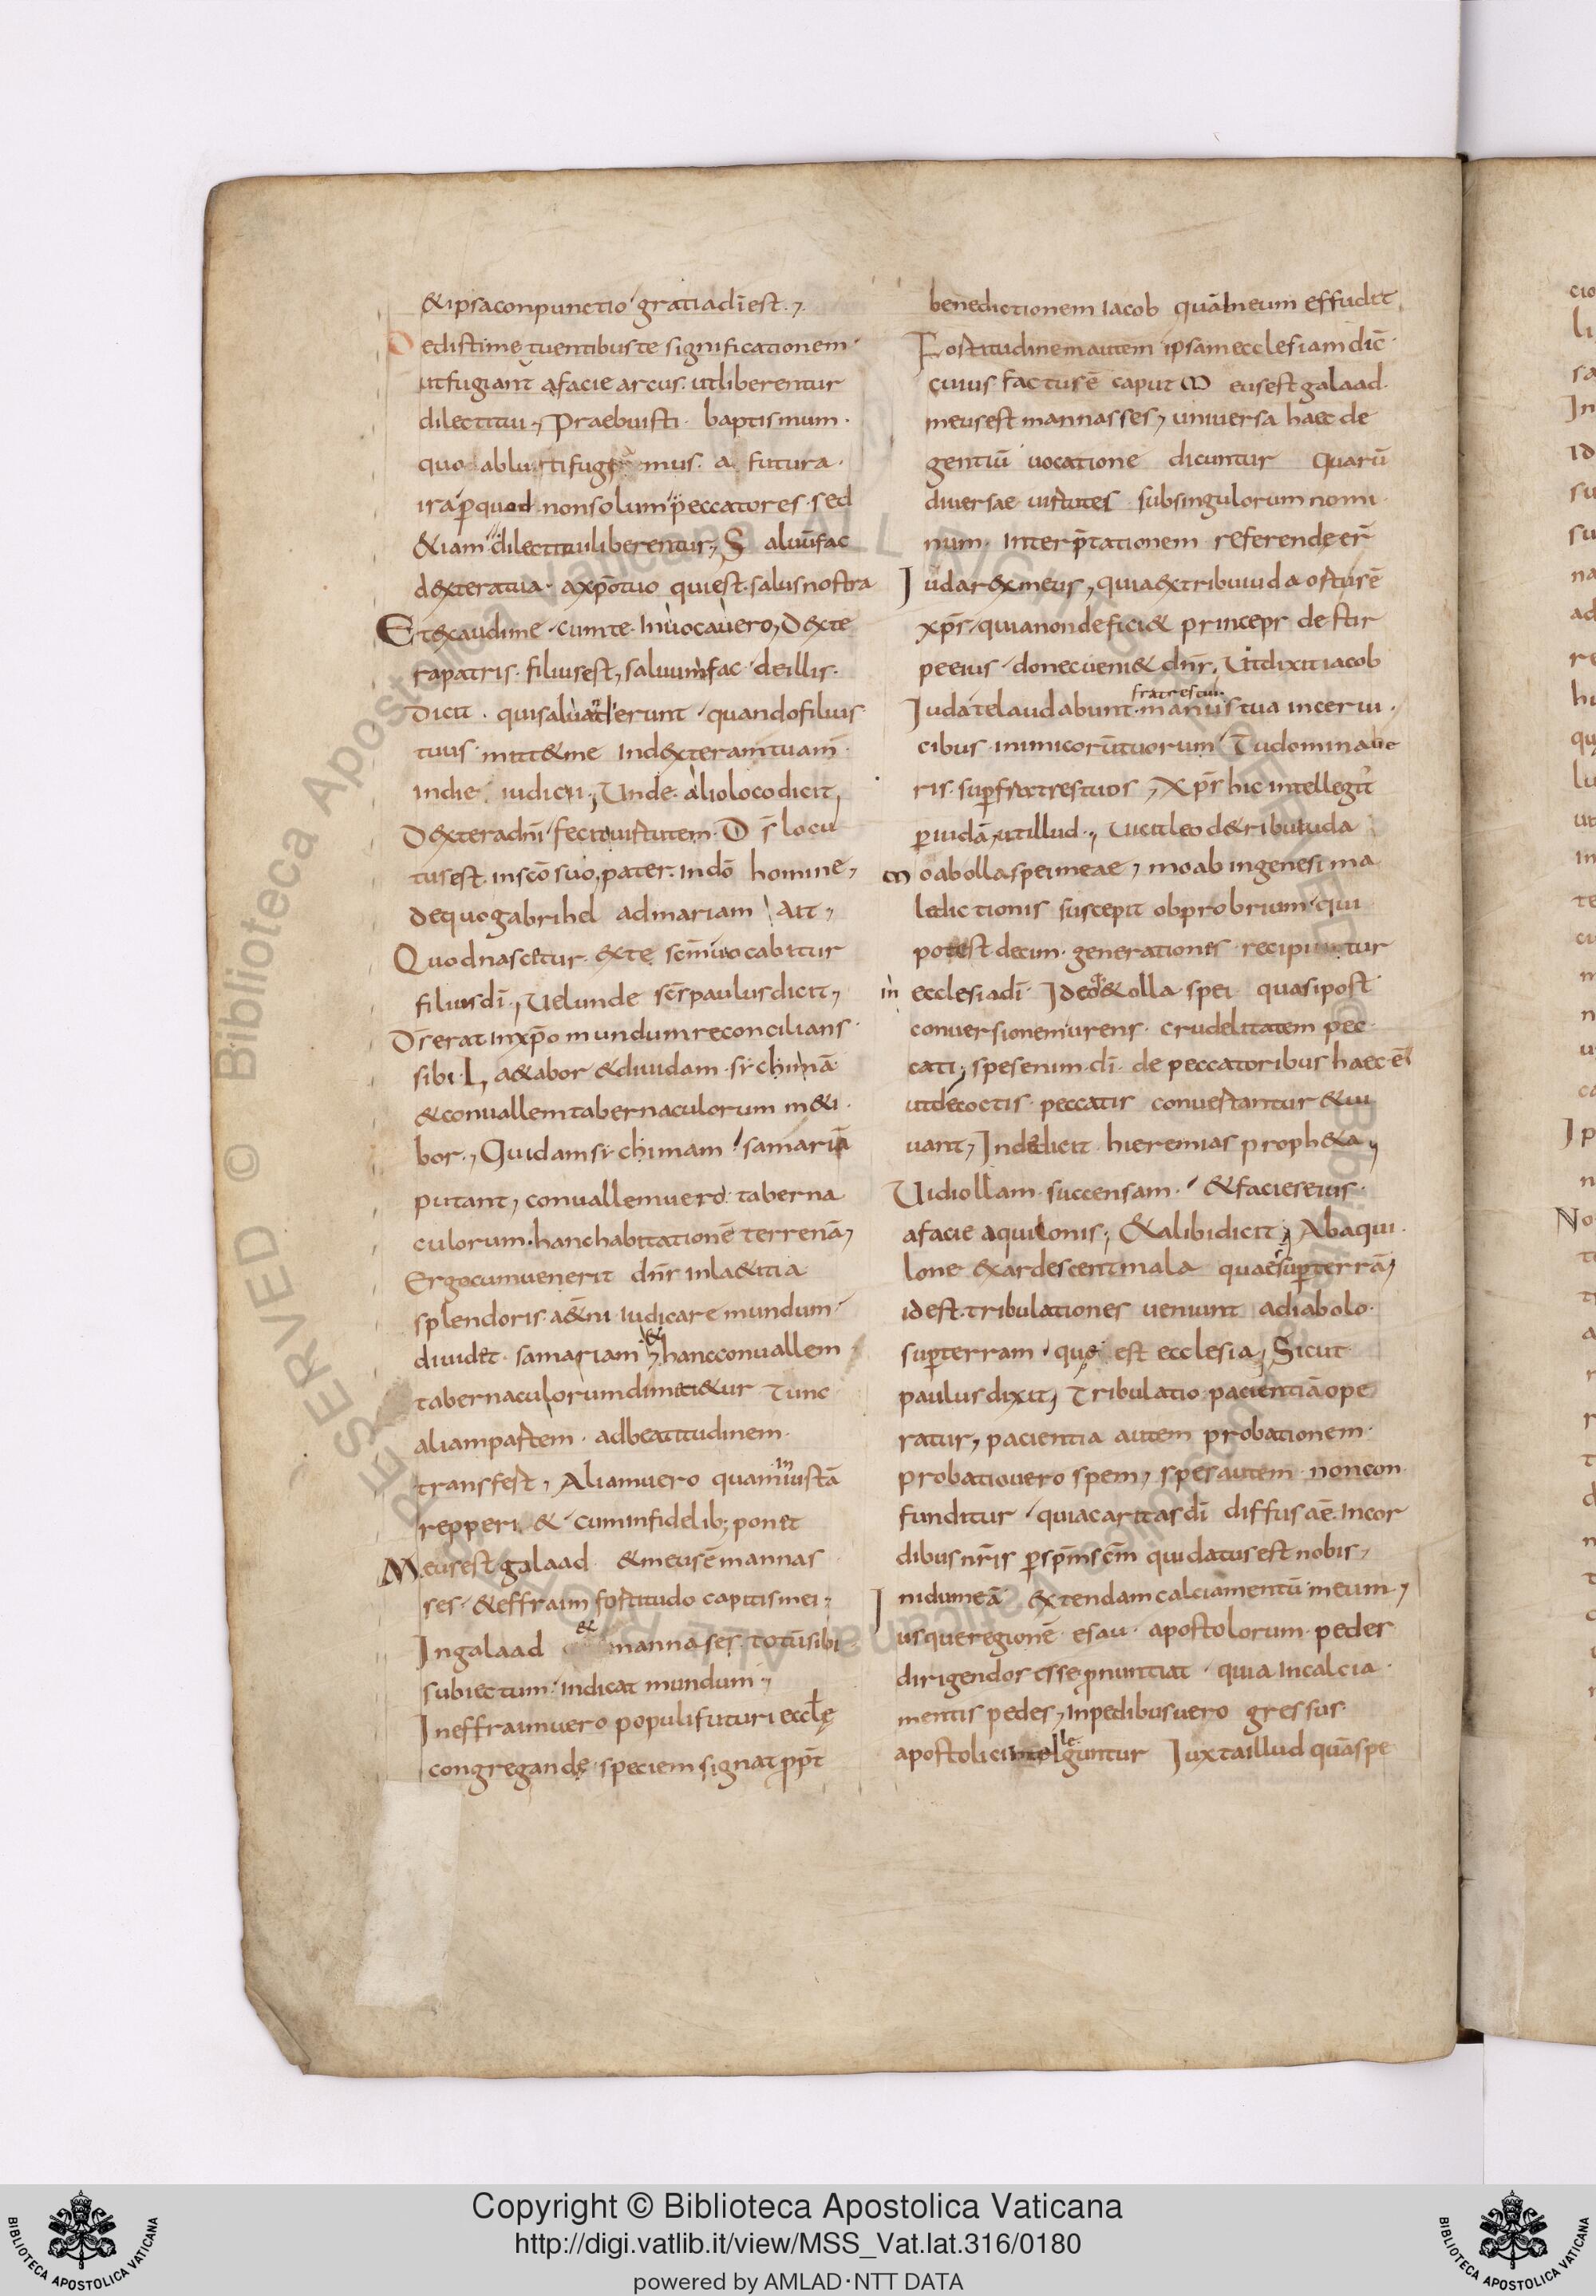 &ipsaconpunctio gratiadīest.
Dedistimetuentibuste significationem
utfugiant afacie arcus. utliberentur
dilectitui, Praebuisti. baptismum.
quo abluti fugiamus. a futura.
ira p̄quod nonsolum peccatores sed
&iam dilectituiliberentur, S aluūfac
d&xteratua. axp̄otuo quiest. salusnostra
Et&xaudime. cumte. Inuocauero, D&xte
rapatris. filiusest, saluumfac deillis.
Dicit. quisaluanderunt quandofilius
tuus mitt&me Ind&xteramtuam
indie iudicii, Unde. aliolocodicit,
D&xteradn̄i fecituirtutem. D s̄ locu
tusest. inscō suo, pater. Indō homine,
dequogabrihel admariam Ait,
Quodnascetur. &xte scm̄uocabitur
filiusdī, Uelunde scs̄paulusdicit,
Ds̄erat Inxp̄o mundumreconcilians.
sibi. L, a&abor &diuidam. sichimā
&conuallemtabernaculorum m&i.
bor., Quidamsichimam samariā
putant, conuallemuero. taberna
culorum. hanchabitationē terrenā,
Ergocumuenerit dn̄s inla&itia
splendoris. a&n̄i iudicare mundum
diuidet. samariam & hancconuallem
tabernaculorumdimeti&ur Tunc
aliampartem. adbeatitudinem.
transfert, Aliamuero quaminiustā
repperi & cuminfidelib; ponet
Meusestgalaad &meusēmannas
ses &effraim fortitudo capitismei,
Ingalaad & mannases. totūsibi
subiectum. indicat mundum,
Ineffraimuero populifuturi eccłę
congregandę. speciem signat pp̄t
benedictionem Iacob quāIneum effudit
Fortitudinemautem ipsamecclesiamdic̄.
cuius factusē caput M eusestgalaad.
meusestmannasses, uniuersa haec de
gentiū uocatione dicuntur Quarū
diuersae uirtutes subsingulorum nomi
num. Interp̄tationem referendeer̄
Iudar&xmeus, quia&xtribuiuda ortusē
xp̄s, quianondefici& princeps destir
peeius donecueni& dn̄s, Utdixitiacob
Iudatelaudabunt. fratrestui. manustua incerui.
cibus inimicorūtuorum Tudominaue
ris. sup̄fratrestuos, Xp̄s hic intellegit̄
p̄iudā, utillud., Uicitleod&ribuiuda
Moabollaspeimeae, moab ingenesi ma
ledictionis suscepit obprobrium qui
potest decim. generationes recipiuntur
in ecclesiadī Ideo&olla spei quasipost
conuersionemurens. crudelitatem pec
cati, spesenim. dī de peccatoribus haec ē
utdecoctis peccatis conuertantur &ui
uant, Indedicit hieremias proph&a,
Uidiollam succensam. &facieseius.
afacie aquilonis, &alibidicit, Abaqui.
lone &xardescentmala quaesup̄terrā,
idest. tribulationes ueniunt adiabolo.
sup̄terram quę est ecclesia, Sicut
paulusdixit, Tribulatio pacientiāope
ratur, pacientia autem probationem.
probatiouero spem, spesautem noncon.
funditur quiacaritasdī diffusaē. Incor
dibusnr̄is p̄sp̄mscm̄ quidatusestnobis,
Inidumeā &xtendamcalciamentū meum,
usqueregionē esau. apostolorum. pedes
dirigendos esse p̄nuntiat. quia Incalcia.
mentis pedes, Inpedibusuero gressus.
apostoliciintelleguntur Iuxtaillud quāspe
Copyright © Biblioteca Apostolica Vaticana
http://digi.vatlib.it/view/MSS_Vat.lat.316/0180
powered by AMLAD·NTT DATA
BIBLIOTECA APOSTOLICA VATICANA
BIBLIOTECA APOSTOLICA VATICANA